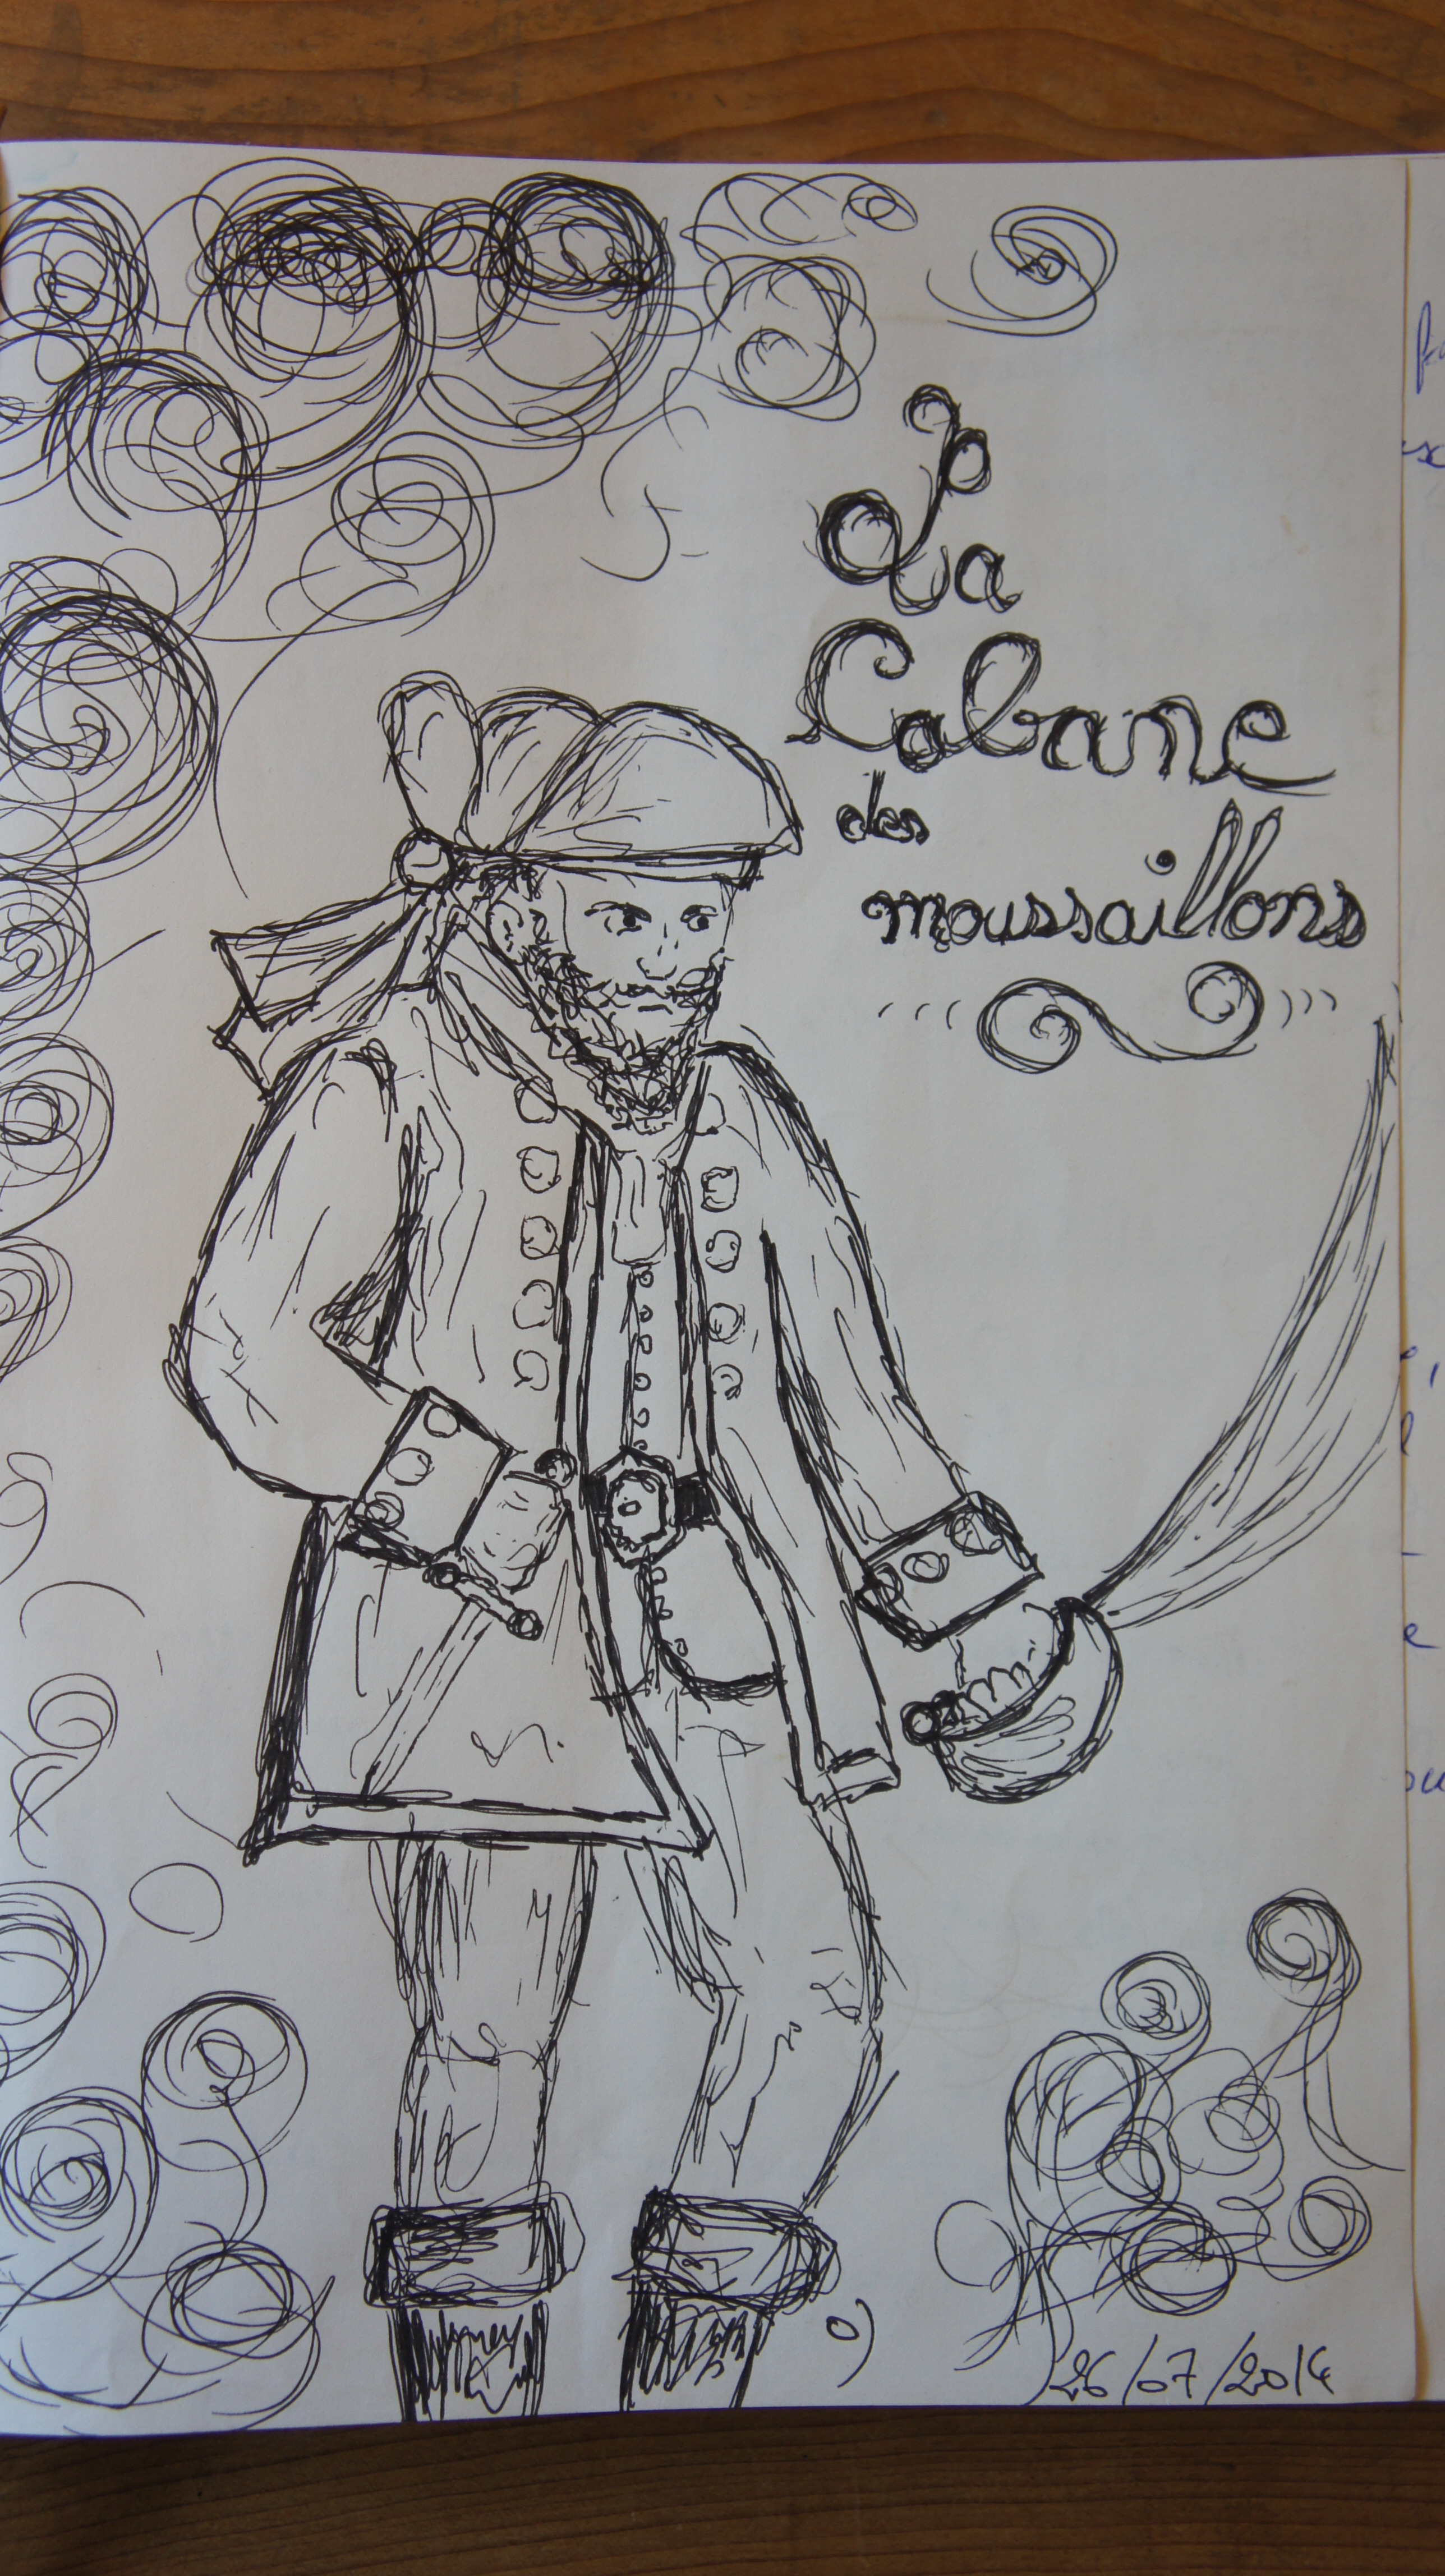 La
Cabane
des
moussaillons
26/07/2014